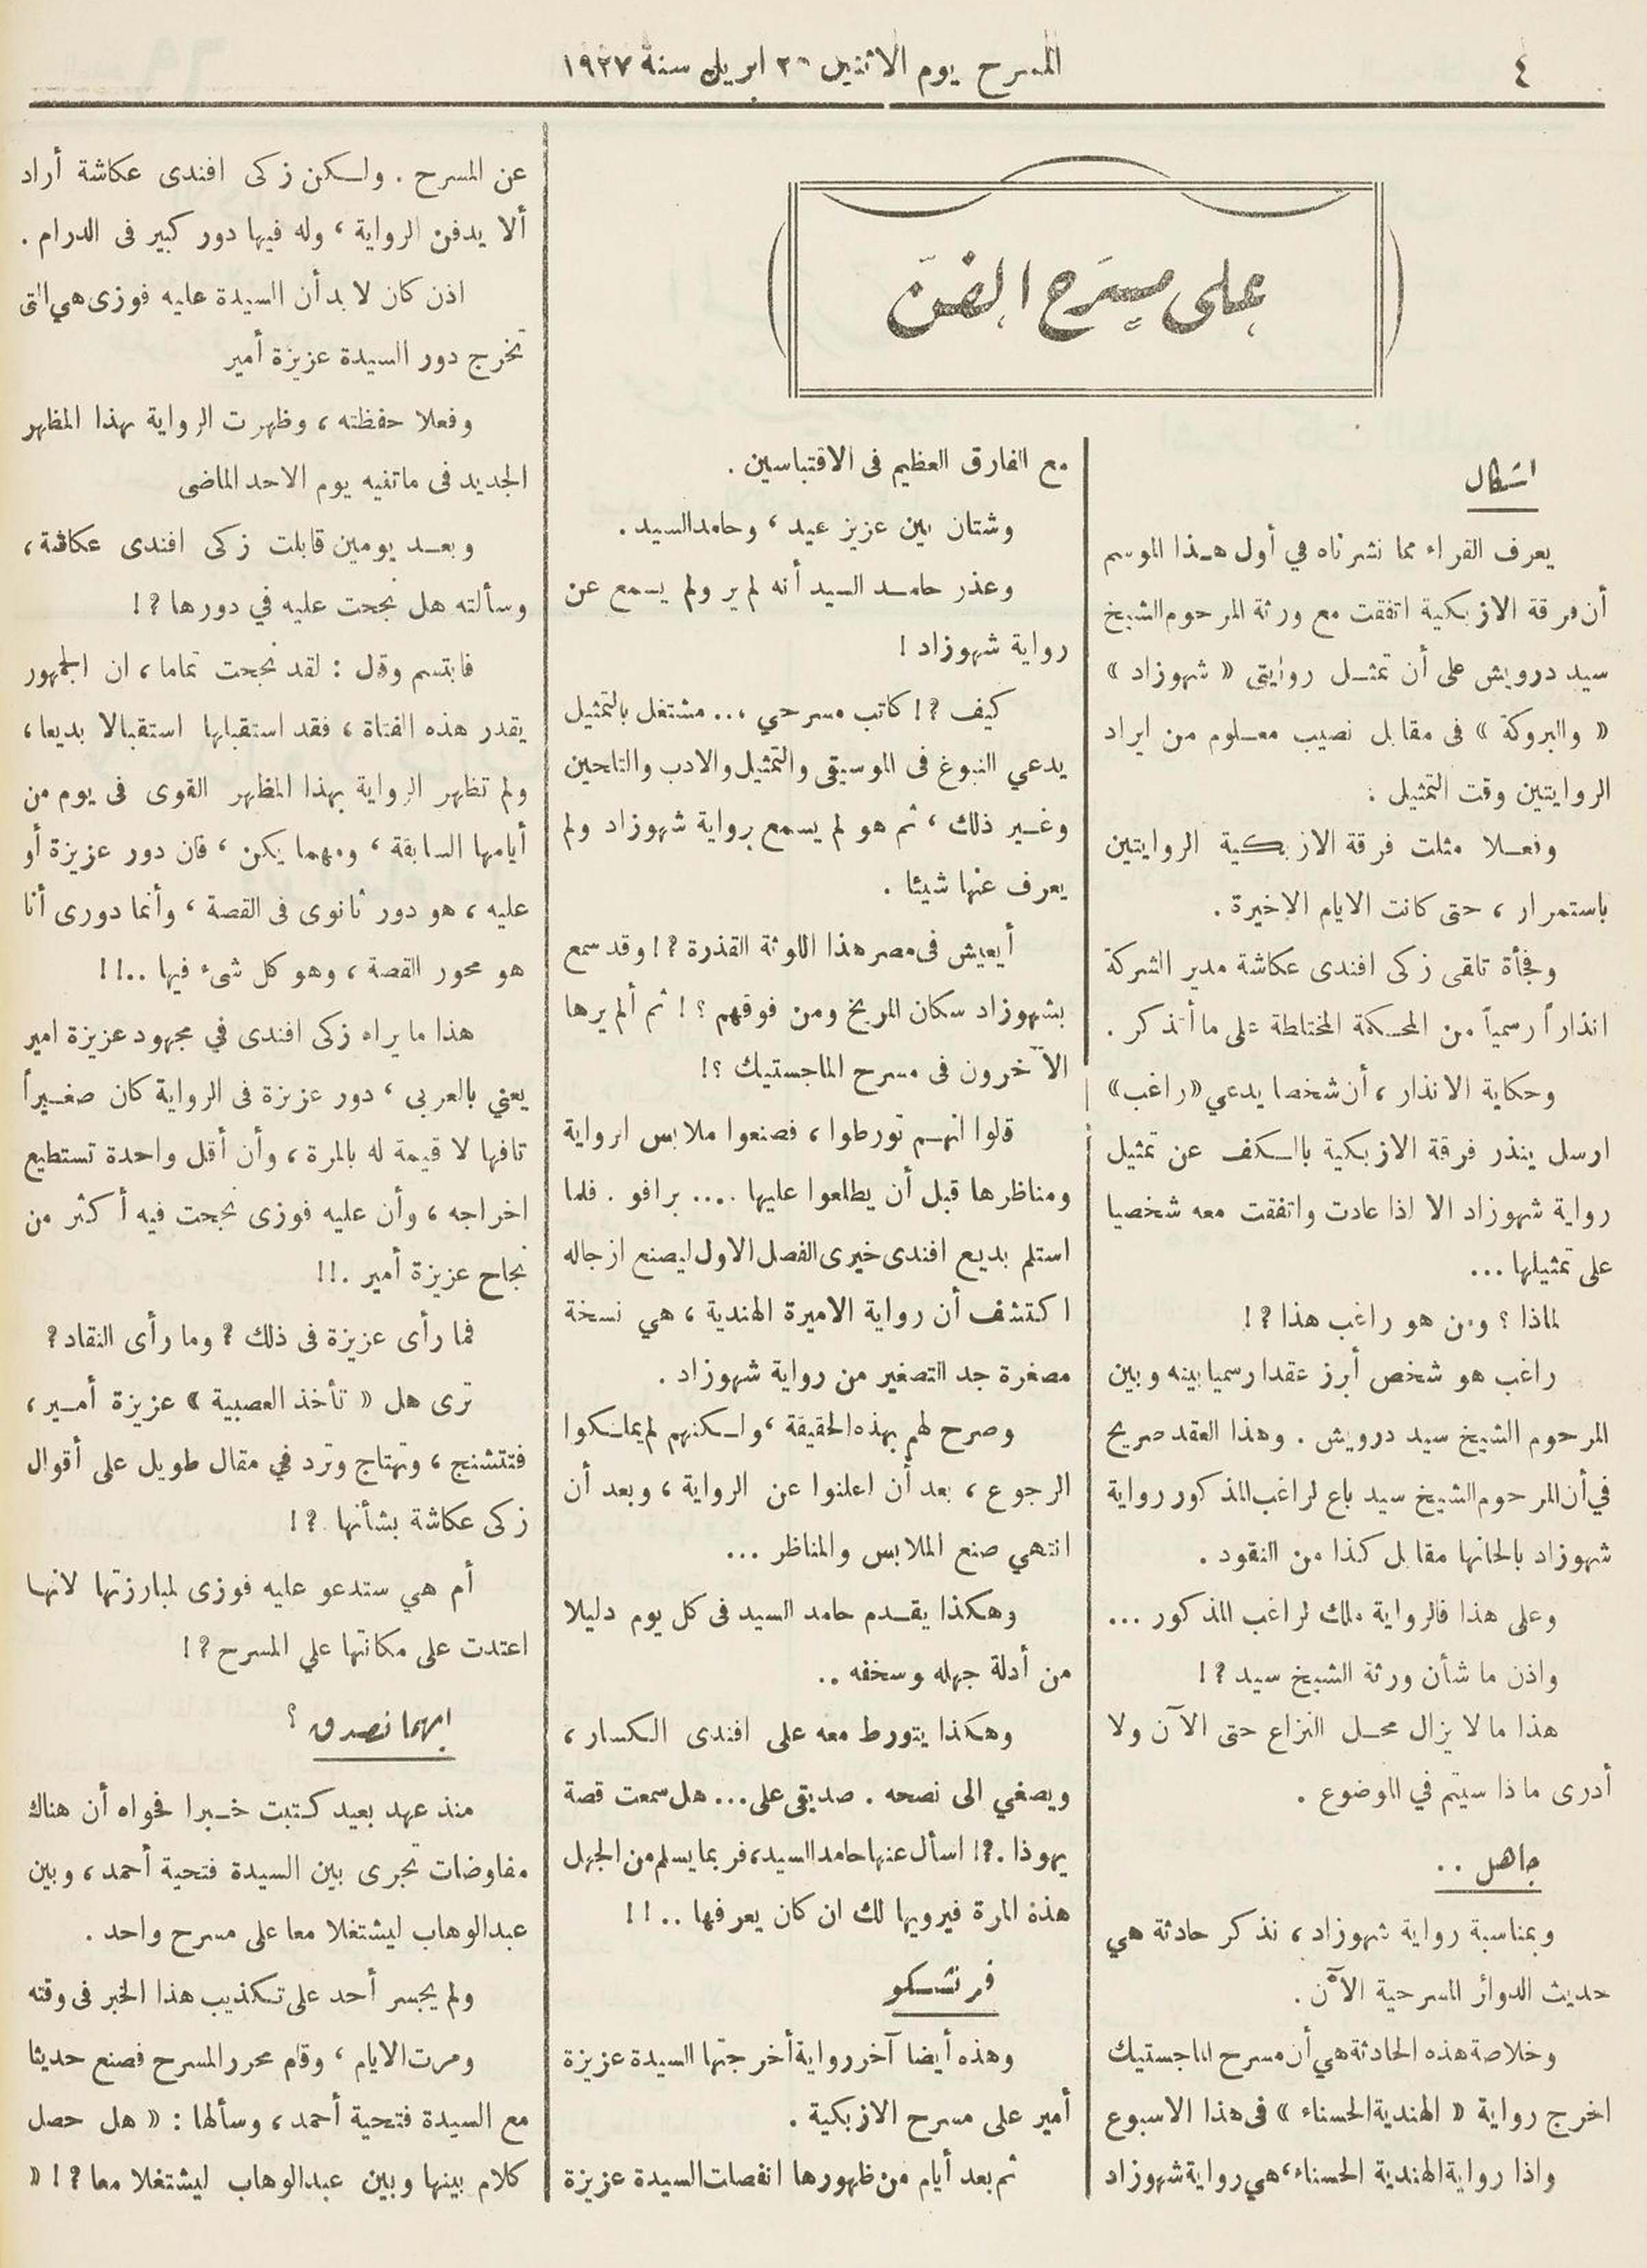 ٤
المسرح يوم الاثنين ٢٦ ابريل سنة ١٩٢٧
على مسرح الفن
اشكال
يعرف القراء مما نشرناه في أول هذا الموسم
أن فرقة الازبكية اتفقت مع ورثة المرحوم الشيخ
سيد درويش على أن تمثل روايتى « شهوزاد »
« والبروكة » فى مقابل نصيب معلوم من ايراد
الروايتين وقت التمثيل .
وفعلا مثلت فرقة الازبكية الروايتين
باستمرار ، حتى كانت الايام الاخيرة .
وفجأة تلقى زكى افندى عكاشة مدير الشركة
انذاراً رسمياً من المحكمة المختلطة على ما أتذكر .
وحكاية الانذار ، أن شخصا يدعي « راغب »
ارسل ينذر فرقة الازبكية بالكف عن تمثيل
رواية شهوزاد الا اذا عادت واتفقت معه شخصيا
على تمثيلها ...
لماذا ؟ ومن هو راغب هذا ?!
راغب هو شخص أبرز عقدا رسميا بينه وبين
المرحوم الشيخ سيد درويش . وهذا العقد صريح
في أن المرحوم الشيخ سيد باع لراغب المذكور رواية
شهوزاد بالحانها مقابل كذا من النقود .
وعلى هذا فالرواية ملك لراغب المذكور ...
واذن ما شأن ورثة الشيخ سيد ?!
هذا ما لا يزال محل النزاع حتى الآن ولا
أدرى ماذا سيتم في الموضوع .
جاهل ..
وبمناسبة رواية شهوزاد ، نذكر حادثة هي
حديث الدوائر المسرحية الآن .
وخلاصة هذه الحادثة هي أن مسرح الماجستيك
اخرج رواية « الهندية الحسناء » فى هذا الاسبوع
واذا رواية الهندية الحسناء ، هي رواية شهوزاد
مع الفارق العظيم فى الاقتباسين .
وشتان بين عزيز عيد ، وحامد السيد .
وعذر حامد السيد أنه لم ير ولم يسمع عن
رواية شهوزاد !
كيف ?! كاتب مسرحي ... مشتغل بالتمثيل
يدعي النبوغ فى الموسيقى والتمثيل والادب والتلحين
وغير ذلك ، ثم هو لم يسمع برواية شهوزاد ولم
يعرف عنها شيئا .
أيعيش فى مصر هذا اللوثة القذرة ?! وقد سمع
بشهوزاد سكان المريخ ومن فوقهم ؟! ثم ألم يرها
الآخرون فى مسرح الماجستيك ؟!
قالوا انهم تورطوا ، فصنعوا ملابس الرواية
ومناظرها قبل أن يطلعوا عليها .... برافو . فلما
استلم بديع افندى خيرى الفصل الاول ليصنع ازجاله
اكتشف أن رواية الاميرة الهندية ، هي نسخة
مصغرة جد التصغير من رواية شهوزاد .
وصرح لهم بهذه الحقيقة ، ولكنهم لم يملكوا
الرجوع ، بعد أن اعلنوا عن الرواية ، وبعد أن
انتهي صنع الملابس والمناظر ...
وهكذا يقدم حامد السيد فى كل يوم دليلا
من أدلة جهله وسخفه ..
وهكذا يتورط معه على افندى الكسار ،
ويصغي الى نصحه . صديقى على ... هل سمعت قصة
يهوذا .?! اسأل عنها حامد السيد ، فربما يسلم من الجهل
هذة المرة فيرويها لك ان كان يعرفها ..!!
فرنشسكو
وهذه أيضا آخر رواية أخرجتها السيدة عزيزة
أمير على مسرح الازبكية .
ثم بعد أيام من ظهورها انفصلت السيدة عزيزة
عن المسرح . ولكن زكى افندى عكاشة أراد
ألا يدفن الرواية ، وله فيها دور كبير فى الدرام .
اذن كان لا بد أن السيدة عليه فوزى هي التى
تخرج دور السيدة عزيزة أمير
وفعلا حفظته ، وظهرت الرواية بهذا المظهر
الجديد فى ماتنيه يوم الاحد الماضى
وبعد يومين قابلت زكى افندى عكاشة ،
وسألته هل نجحت عليه في دورها ?!
فابتسم وقال : لقد نجحت تماما ، ان الجمهور
يقدر هذه الفتاة ، فقد استقبلها استقبالا بديعا ،
ولم تظهر الرواية بهذا المظهر القوى فى يوم من
أيامها السابقة ، ومهما يكن ، فان دور عزيزة أو
عليه ، هو دور ثانوى فى القصة ، وأنما دورى أنا
هو محور القصة ، وهو كل شىء فيها ..!!
هذا ما يراه زكى افندى في مجهود عزيزة امير
يعني بالعربى ، دور عزيزة فى الرواية كان صغيراً
تافها لا قيمة له بالمرة ، وأن أقل واحدة تستطيع
اخراجه ، وأن عليه فوزى نجحت فيه أكثر من
نجاح عزيزة أمير .!!
فما رأى عزيزة فى ذلك ? وما رأى النقاد ?
ترى هل « تأخذ العصبية » عزيزة أمير ،
فتتشنج ، وتهتاج وترد في مقال طويل على أقوال
زكى عكاشة بشأنها .?!
أم هي ستدعو عليه فوزى لمبارزتها لانها
اعتدت على مكانتها علي المسرح ?!
ايهما نصدق ؟
منذ عهد بعيد كتبت خبرا فحواه أن هناك
مفاوضات تجرى بين السيدة فتحية أحمد ، وبين
عبدالوهاب ليشتغلا معا على مسرح واحد .
ولم يجسر أحد على تكذيب هذا الخبر فى وقته
ومرت الايام ، وقام محرر المسرح فصنع حديثا
مع السيدة فتحية أحمد ، وسألها : « هل حصل
كلام بينها وبين عبدالوهاب ليشتغلا معا ?! «